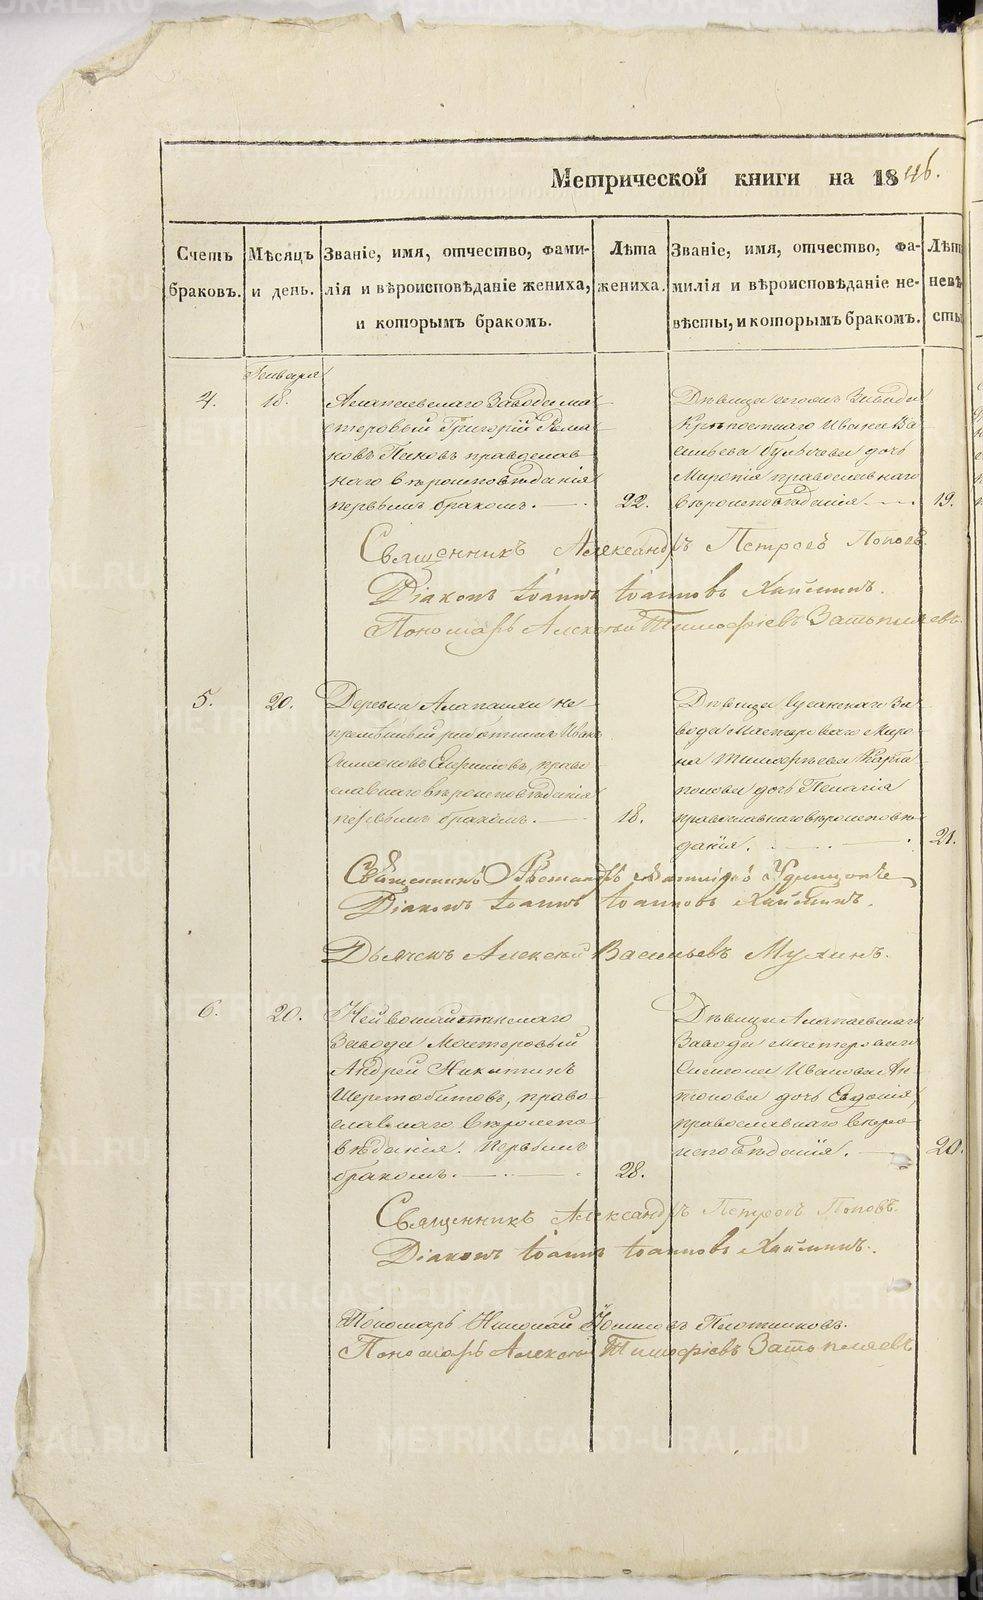 Метрической книги на 1846.
Счетъ браковъ.
Мѣсяцъ и день.
Званіе, имя, отчество, фами-
лія и вѣроисповѣданіе жениха,
и которымъ бракомъ.
Лѣта жениха.
Званіе, имя, отчество, фа-
милія и вѣроисповѣданіе не-
вѣсты, и которымъ бракомъ.
Лѣт
невѣ
сты
Января
4.
18.
Алапаевскаго Завода ма-
стеровый Григорій Рома-
новъ Пановъ православ-
наго вѣроисповѣданія
первымъ бракомъ.
22.
Дѣвица онаго Завода
Крѣпостнаго Ивана Ва-
сильева дочь
православнаго
вѣроисповѣданія
19.
Священникъ Александръ Петровъ Поповъ
Діаконъ Іоаннъ Іоанновъ Хайминъ.
Пономарь Алексѣй Тимофѣевъ Затопляевъ.
5.
20.
Деревни Алапаихи не-
премѣнный работникъ Иванъ
Симеоновъ право
славнаго вѣроисповѣданія
первымъ бракомъ.
18.
Дѣвица Сусанскаго За-
вода Мастероваго Миро-
на Тимофѣева
дочь Пелагія
православнаго вѣроисповѣ
данія.
21.
Священникъ
Діаконъ Іоаннъ Іоанновъ Хайминъ.
Дьячекъ Алексѣй Васильевъ Мухинъ.
6.
20.
Нейвошайтанскаго
Завода Мастеровый
Андрей Никитинъ
право
славнаго вѣроиспо
вѣданія. Первымъ
бракомъ.
28.
Дѣвица Алапаевскаго
Завода мастероваго
Симеона Иванова Ан
тонова дочь
православнаго вѣро
исповѣданія.
20.
Священникъ Александръ Петровъ Поповъ.
Діаконъ Іоаннъ Іоанновъ Хайминъ.
Пономарь Николай Плотниковъ.
Пономарь Алексѣй Тимофѣевъ Затопляевъ
METRIKI.GASO-URAL.RU